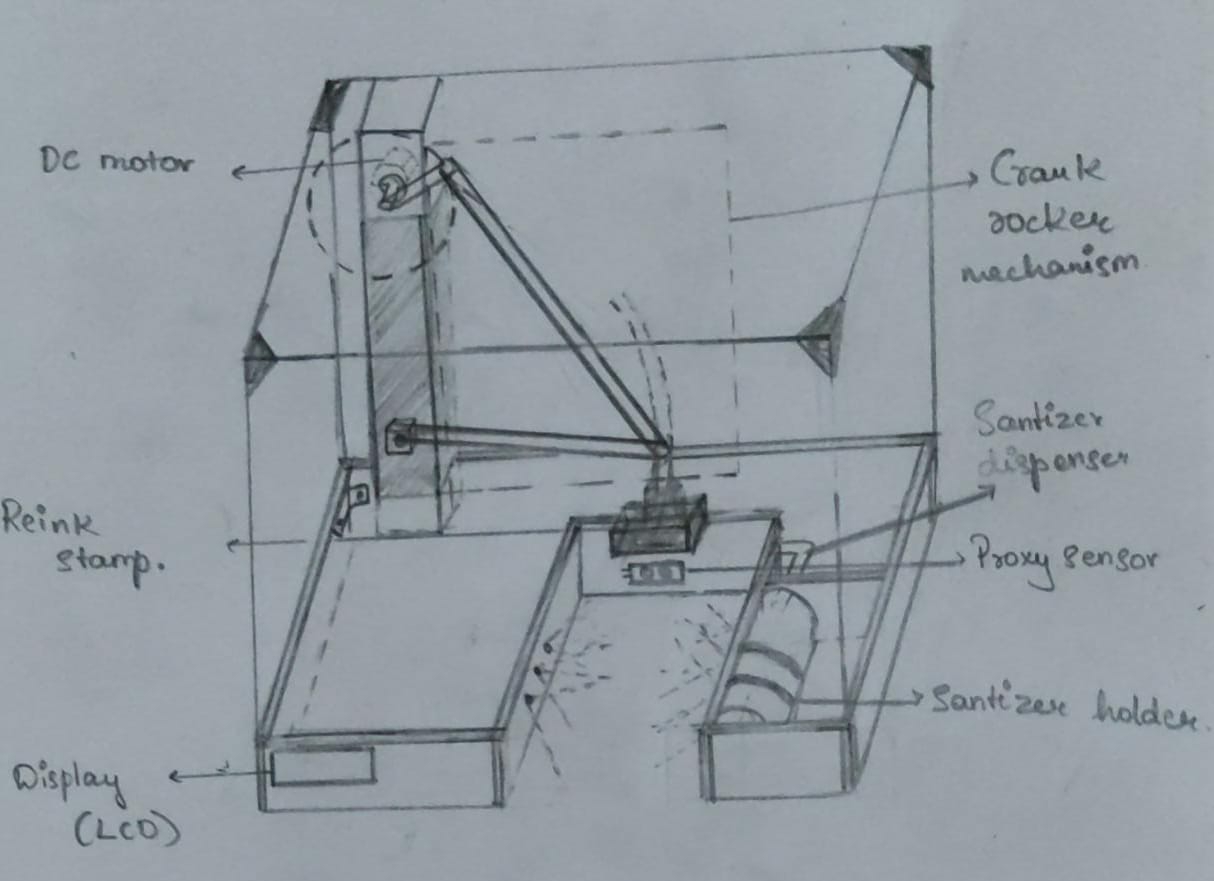 DC motor
Crank
rocker
mechanism.
Santizer
dispenser
Reink
stamp.
Proxy sensor
Santizer holder.
Display
(LCD)